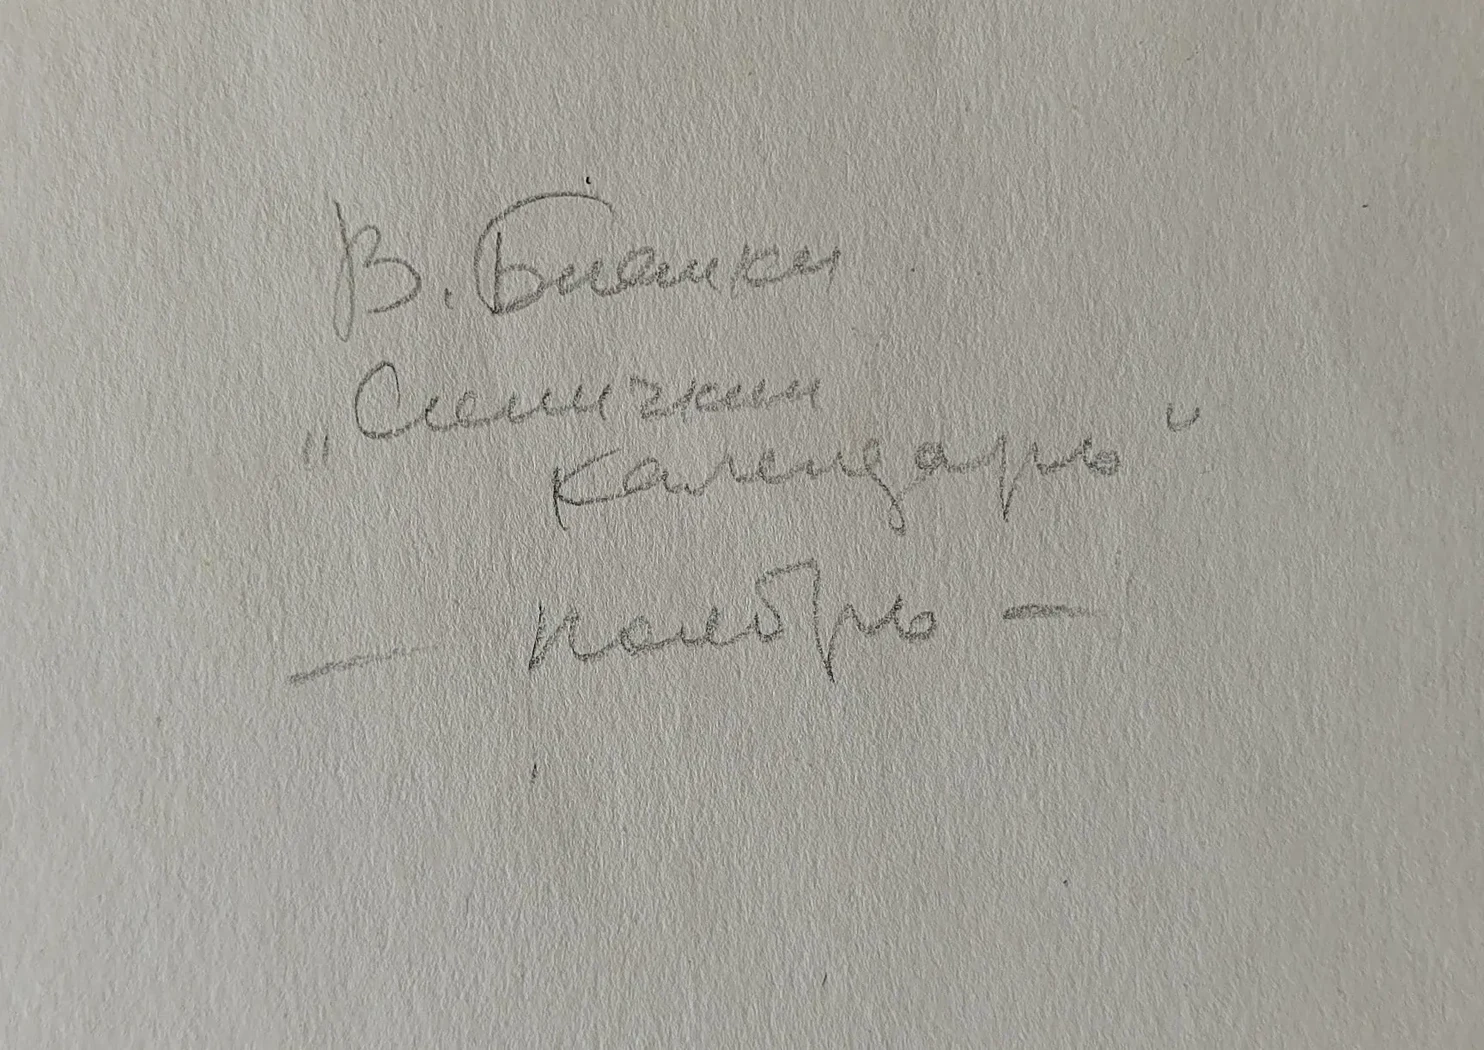 В. Бианки
„Синичкин
календарь"
— ноябрь —